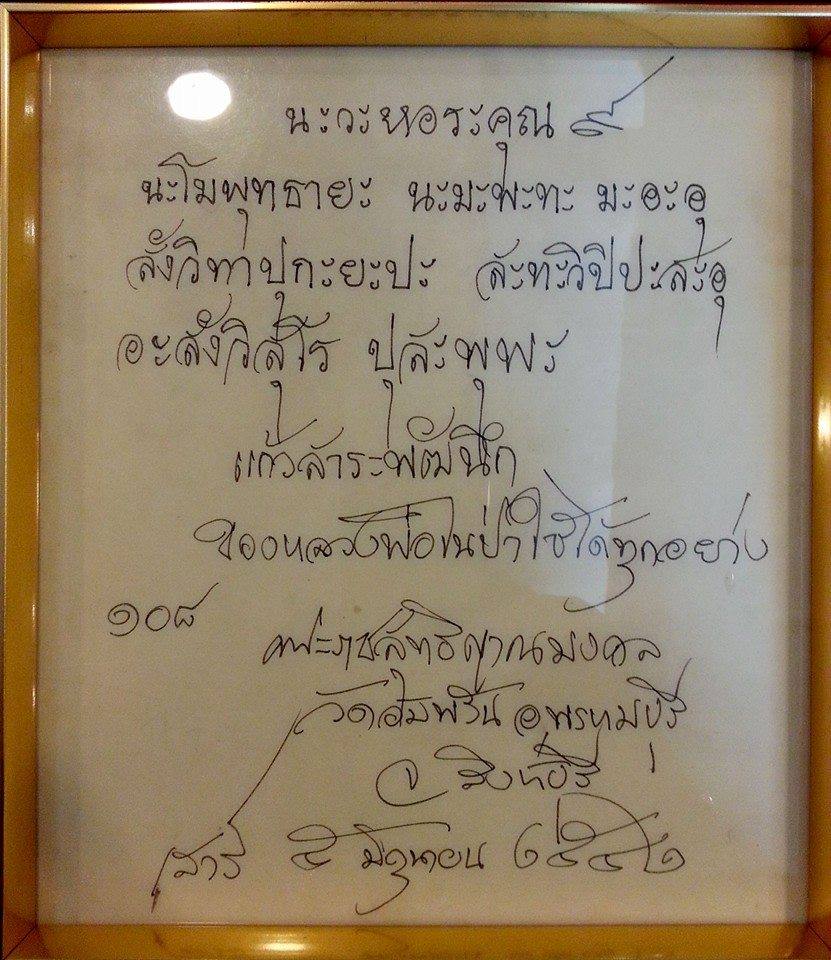 นะวะหอระคุณ ๙
นะโมพุทธายะ นะมะพะทะ มะอะอุ
สังวิทาปุกะยะปะ สะทะวิปิปะสะอุ
อะสังวิสุโร ปุสะพุพะ
แก้วสาระพัฒนึก
ของหลวงพ่อในป่าใช้ได้ทุกอย่าง
๑๐๘ พระราชสุทธิญาณมงคล
วัดอัมพวัน อ.พรหมบุรี
จ. สิงห์บุรี
เสาร์ ๕ มิถุนายน ๒๕๔๒